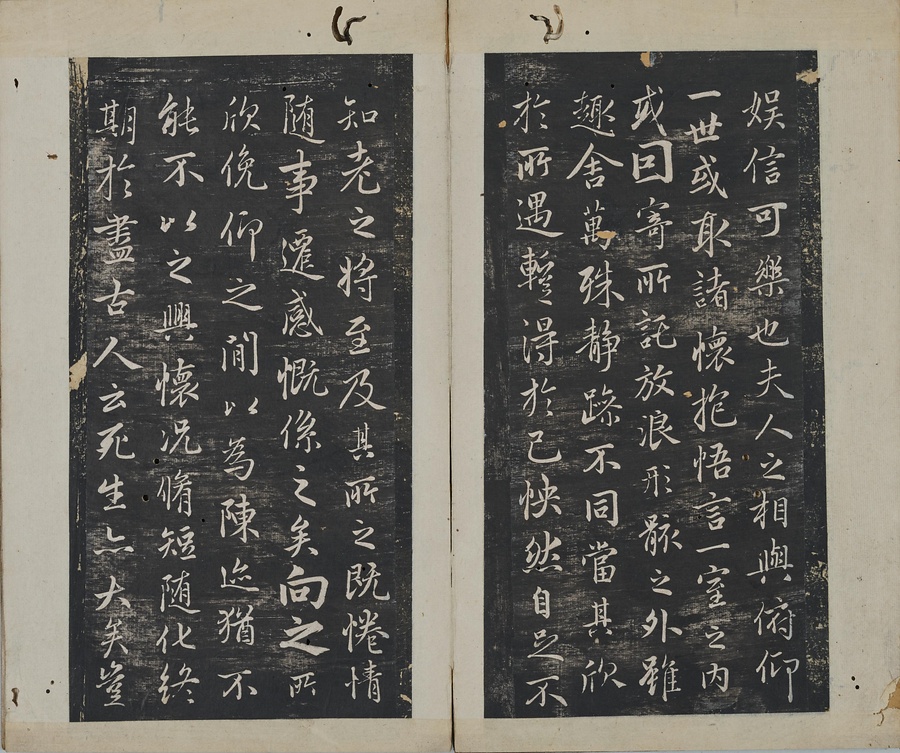 娱信可樂也夫人之相與俯仰
一世或取諸懷抱悟言一室之内
或因寄所託放浪形骸之外雖
趣舍萬殊静躁不同當其欣
於所遇暫得於己怏然自足不
知老之将至及其所之既惓情
随事遷感慨係之矣向之所
欣俛仰之閒以為陳迹猶不
能不以之興懷況脩短随化終
期於盡古人云死生亦大矣豈